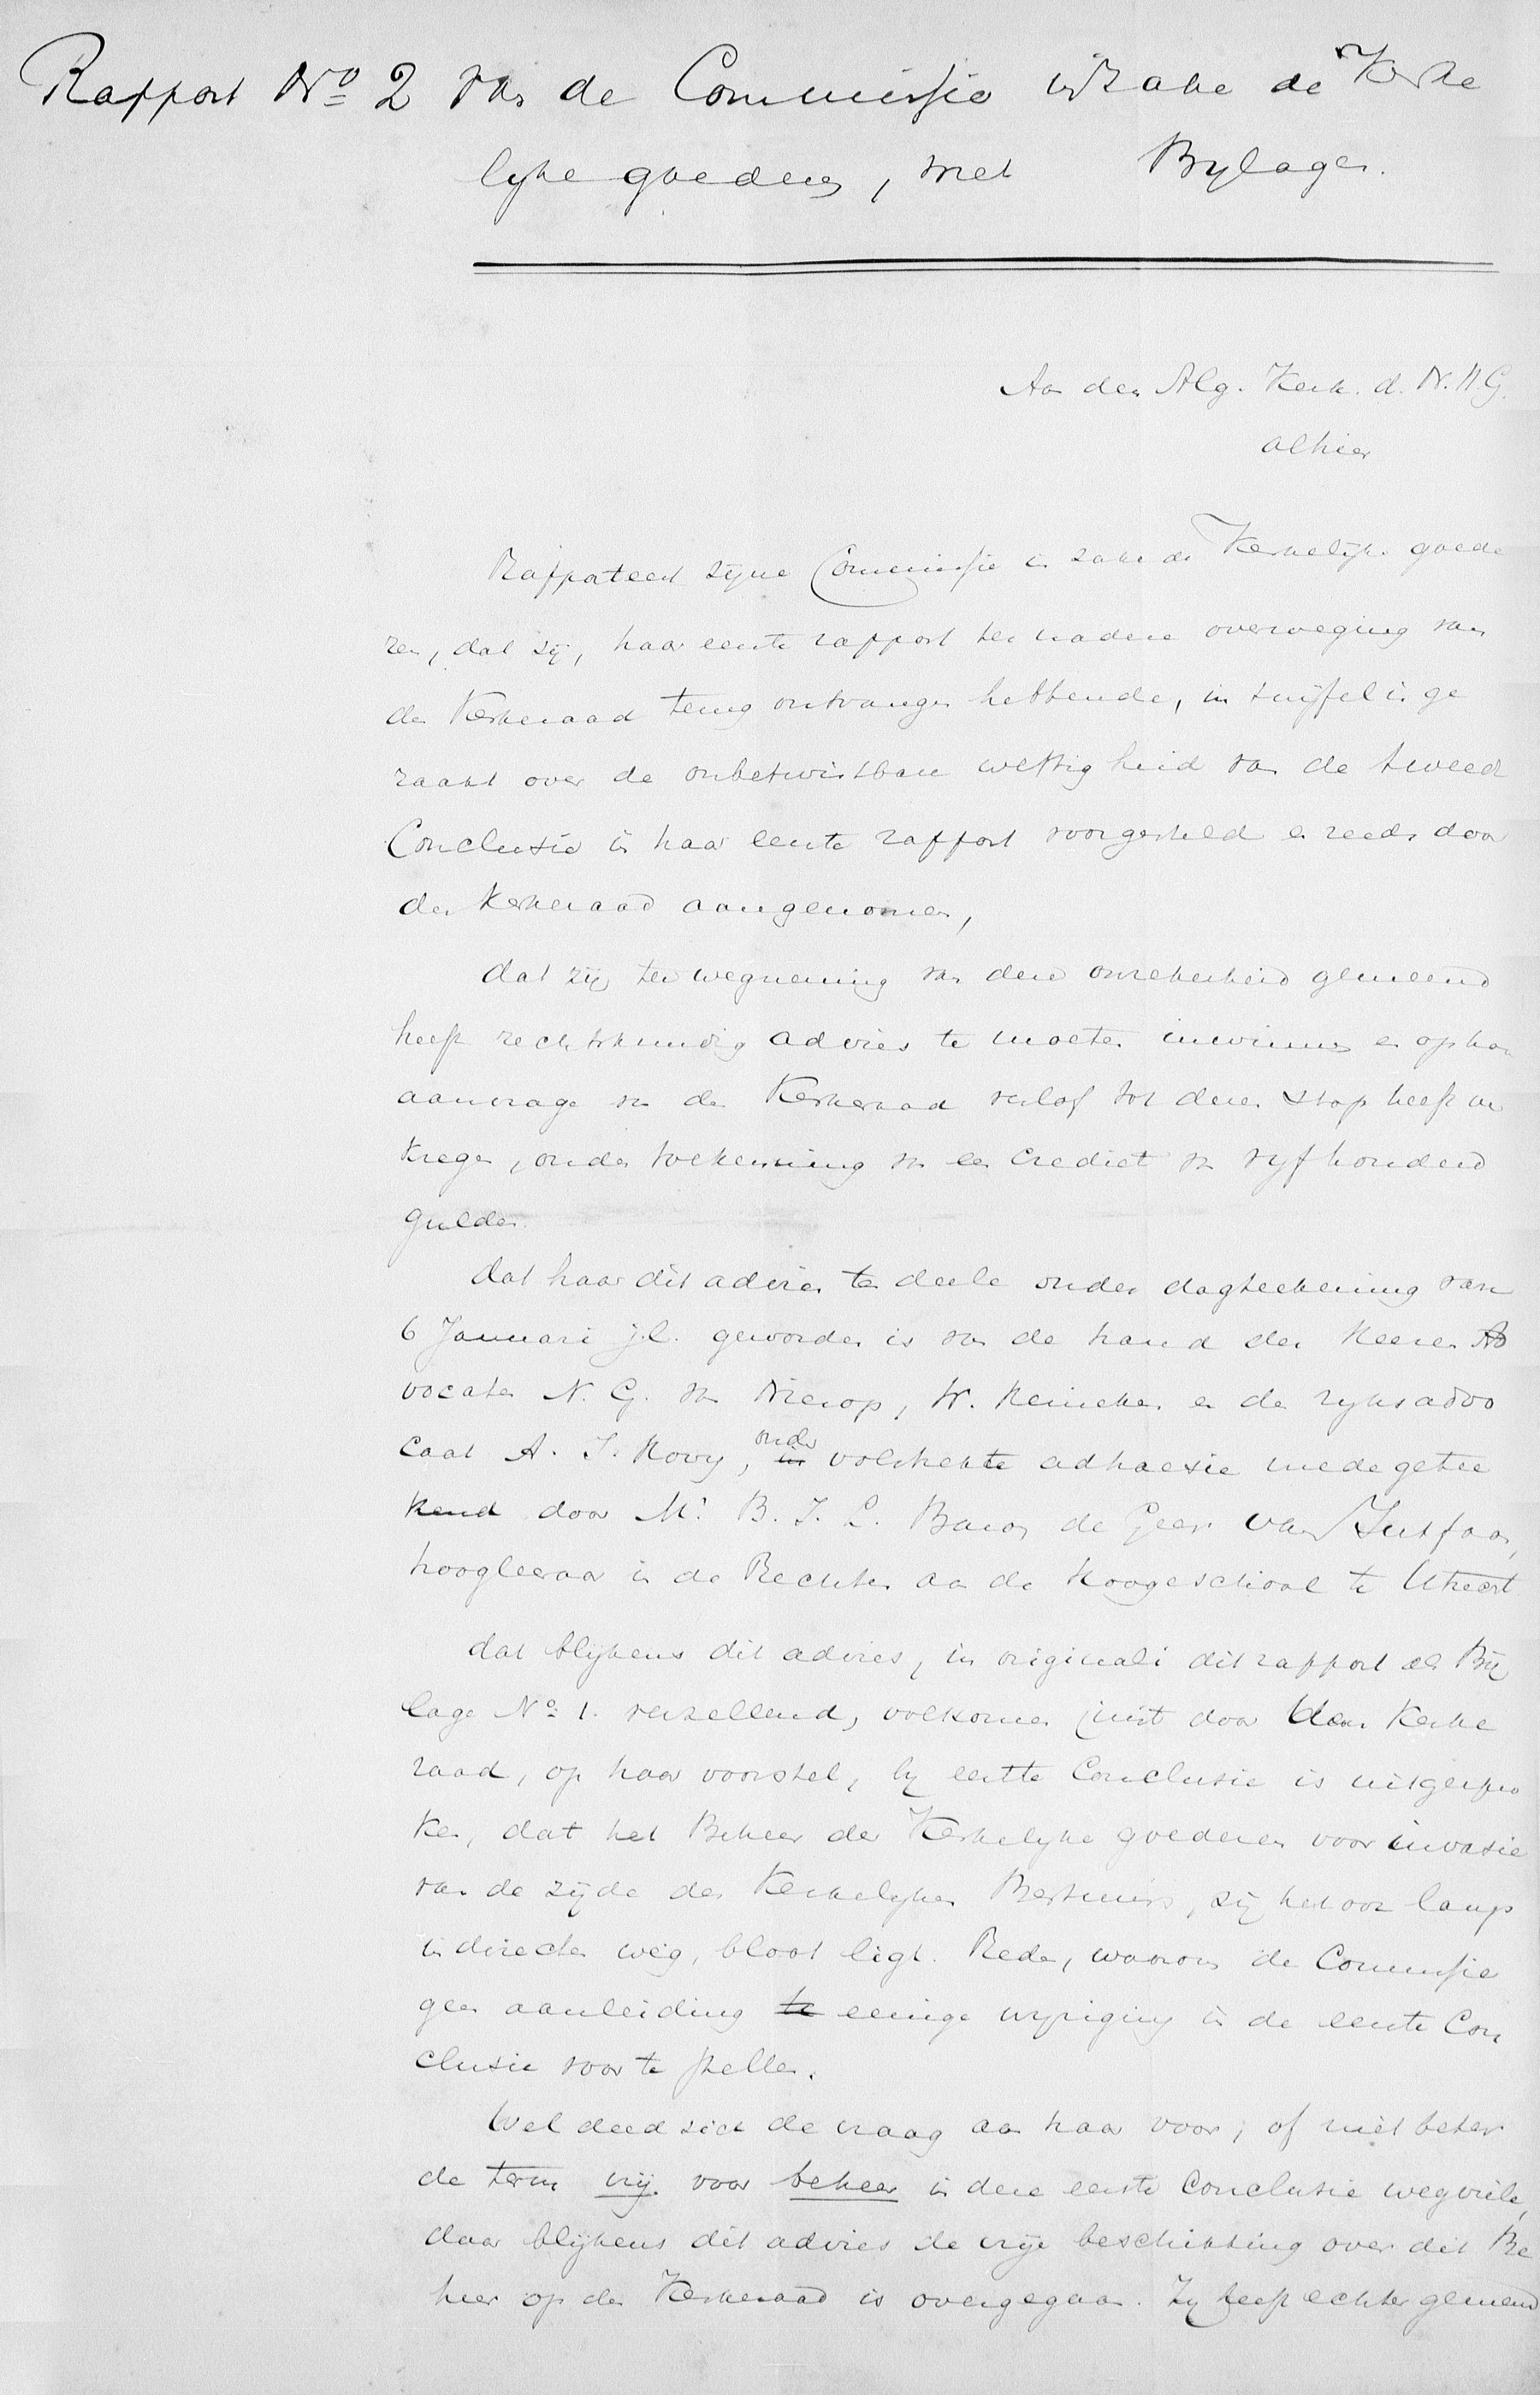 Rapport No 2 van de Commissie inzake de Kerke
lyke goederen, met Bylagen.
Aan den Alg. Kerk. d. N. H G.
alhier
Rapporteert zijne Commissie in zake de Kerkelijke goede
ren, dat zij, haar eerste rapport ter nadere overweging van
den Kerkeraad terug ontvangen hebbende, in twijfel is ge
raakt over de onbetwistbare wettigheid van de tweede
Conclusie in haar eerste rapport voorgesteld en reeds door
den Kerkeraad aangenomen,
dat zij ter wegneming van deze onzekerheid gemeend
heeft rechtskundig advies te moeten inwinnen en op haar
aanvrage van den Kerkeraad verlof tot dezen stap heeft ver
kregen, onder toekenning van een crediet van vyfhonderd
gulden.
dat haar dit advies ten deele onder dagteekening van
6 Januari j.l. geworden is van de hand der Heeren Ad
vocaten N. G. van Nierop, W. Heineken en den ryksadvo
caat A. J. Hovy, onder volstrekte adhaesie mede getee
kend door Mr. B. J. L. Baron de Geer van Jutfaas,
hoogleeraar in de Rechten aan de Hoogeschool te Utrecht
dat blijkens dit advies, in originali dit rapport als Bij
lage No. 1. verzellend, volkomen juist door den Kerke
raad, op haar voorstel, by eerste Conclusie is uitgespro
ken, dat het Beheer der Kerkelyke goederen voor invasie
van de zijde der Kerkelyken Bestuurs, zij het ook langs
indirecten weg, bloot ligt. Reden, waarom de Commissie
geen aanleiding te eenige wyziging in de eerste Con
clusie voor te stellen.
Wel deed zich de vraag aan haar voor, of niet beter
de term vrij. voor beheer in deze eerste Conclusie wegviele,
daar blijkens dit advies de vrije beschikking over dit Be
heer op den Kerkeraad is overgegaan. Zy heeft echter gemeend